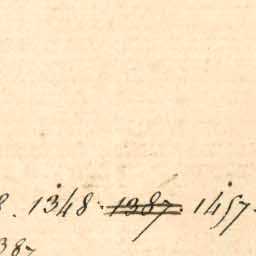 8. 1348. 1387. 1457.
387